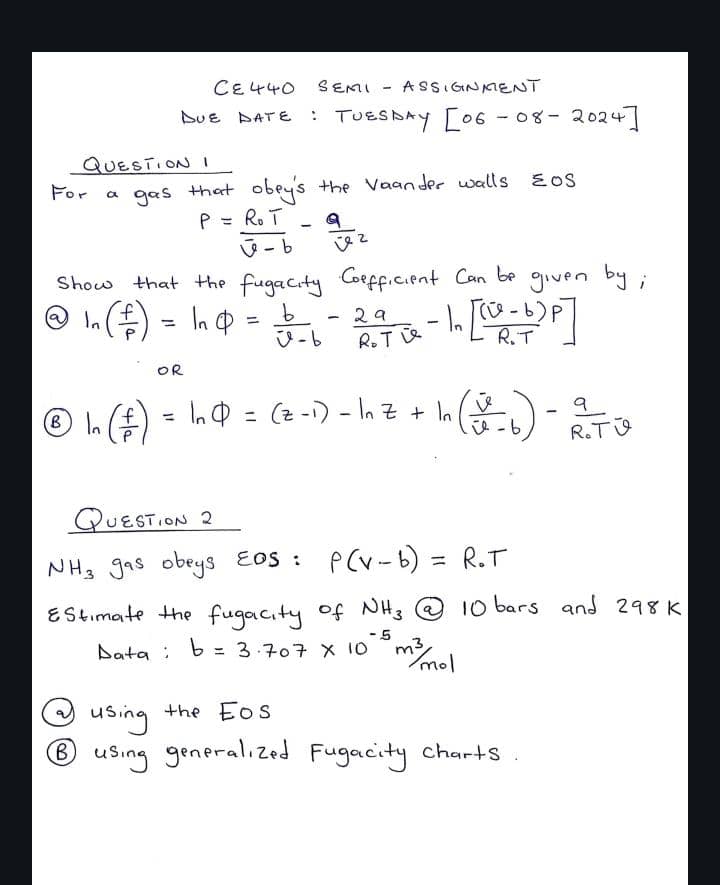 CE440 SEMI - ASSIGNMENT
DUE DATE : TUESDAY [06 - 08 - 2024]
QUESTION 1
For a gas that obey's the Vaander walls EOS
P = R₀T / (v̄ - b) - a / v̄²
Show that the fugacity Coefficient Can be given by ;
(a) ln(f/P) = ln Φ = b / (v̄ - b) - 2a / (R₀T v̄) - ln[(v̄ - b)P / R₀T]
OR
(B) ln(f/P) = ln Φ = (z - 1) - ln z + ln(v̄ / (v̄ - b)) - a / (R₀T v̄)
QUESTION 2
NH₃ gas obeys EOS : P(v - b) = R₀T
EStimate the fugacity of NH₃ @ 10 bars and 298 K
Data : b = 3.707 x 10⁻⁵ m³/mol
(a) using the EoS
(B) using generalized Fugacity charts .